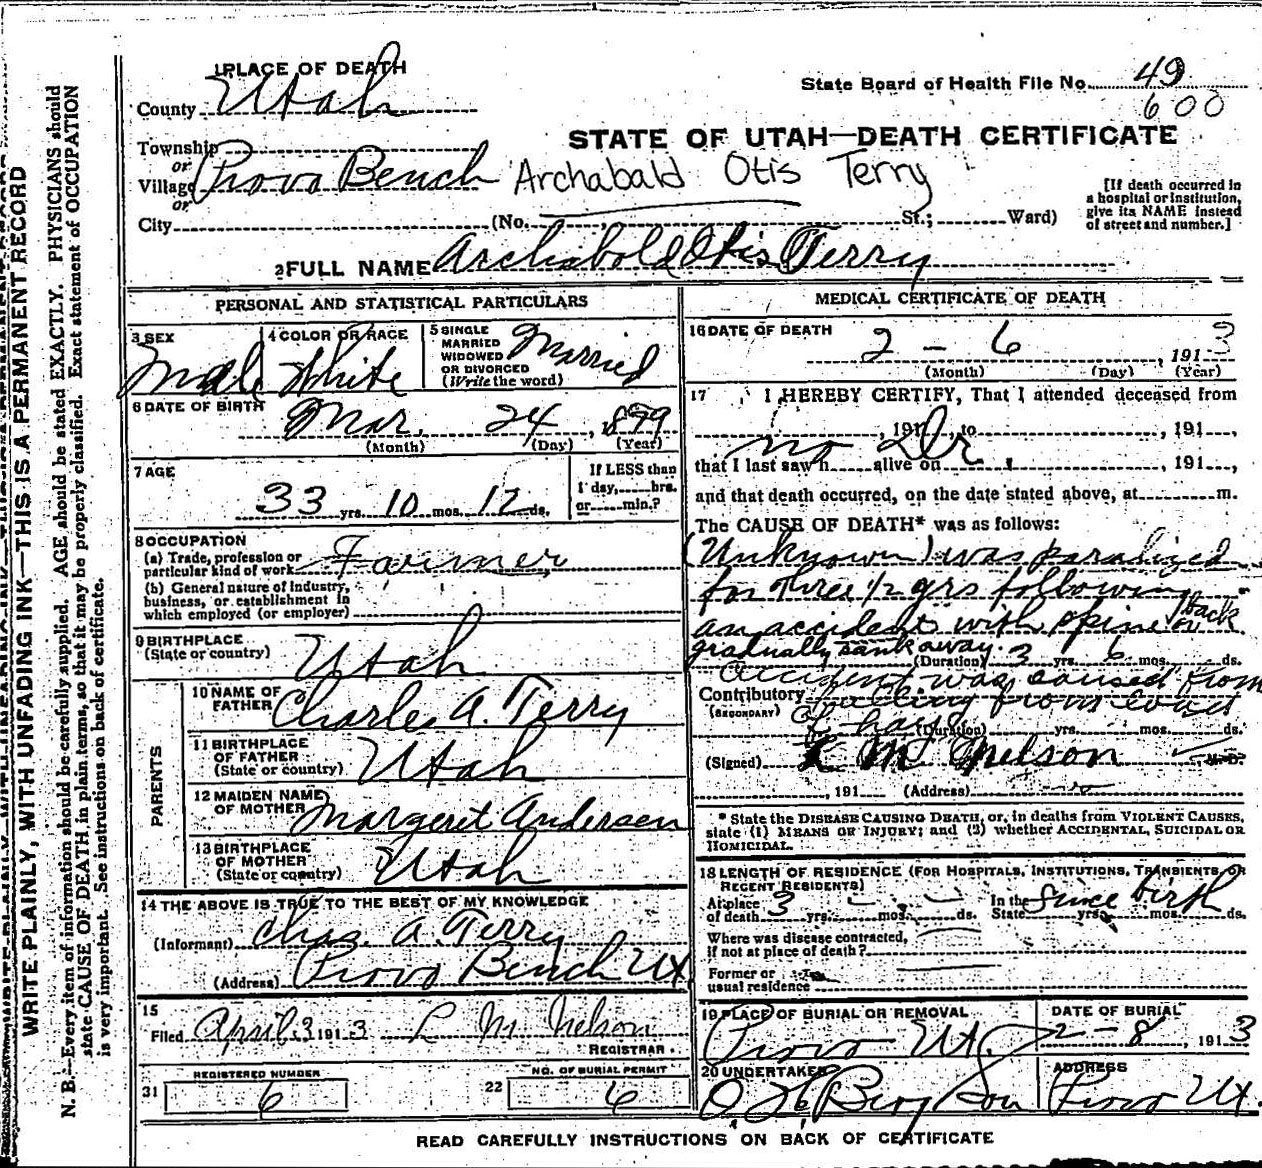 1 PLACE OF DEATH
County Utah
State Board of Health File No. 49
600
STATE OF UTAH—DEATH CERTIFICATE
Township
or
Village Provo Bench
or
Archabald Otis Terry
City (No. St.; Ward)
[If death occurred in a hospital or institution, give its NAME instead of street and number.]
2 FULL NAME Archabold Otis Terry
PERSONAL AND STATISTICAL PARTICULARS
3 SEX Male
4 COLOR OR RACE White
5 SINGLE MARRIED WIDOWED OR DIVORCED (Write the word) Married
6 DATE OF BIRTH Mar. 24, 1879
(Month) (Day) (Year)
7 AGE
33 yrs. 10 mos. 12 ds.
If LESS than 1 day, hrs. or min.?
8 OCCUPATION
(a) Trade, profession or particular kind of work Farmer
(b) General nature of industry, business, or establishment in which employed (or employer)
9 BIRTHPLACE (State or country) Utah
PARENTS
10 NAME OF FATHER Charles A. Terry
11 BIRTHPLACE OF FATHER (State or country) Utah
12 MAIDEN NAME OF MOTHER Margeret Andersen
13 BIRTHPLACE OF MOTHER (State or country) Utah
14 THE ABOVE IS TRUE TO THE BEST OF MY KNOWLEDGE
(Informant) Chas. A. Terry
(Address) Provo Bench Ut
15
Filed April 3 1913 L M Nelson
REGISTRAR.
REGISTERED NUMBER
31 6
NO. OF BURIAL PERMIT
22 6
MEDICAL CERTIFICATE OF DEATH
16 DATE OF DEATH
2 – 6, 1913
(Month) (Day) (Year)
17 I HEREBY CERTIFY, That I attended deceased from
, 191 , to , 191 ,
no Dr
that I last saw h alive on , 191 ,
and that death occurred, on the date stated above, at m.
The CAUSE OF DEATH* was as follows:
(Unknown) was paralized
for three 1/2 yrs following
an accident with spine or back
gradually sank away.
(Duration) 3 yrs. 6 mos. ds.
Contributory (SECONDARY) Accident was caused from
falling from load
of hay
(Duration) yrs. mos. ds.
(Signed) L M Nelson M.D.
, 191 (Address)
* State the DISEASE CAUSING DEATH, or, in deaths from VIOLENT CAUSES, state (1) MEANS OF INJURY; and (2) whether ACCIDENTAL, SUICIDAL OR HOMICIDAL.
18 LENGTH OF RESIDENCE (FOR HOSPITALS, INSTITUTIONS, TRANSIENTS OR RECENT RESIDENTS)
At place of death 3 yrs. mos. ds. In the State Since birth yrs. mos. ds.
Where was disease contracted, if not at place of death?
Former or usual residence
19 PLACE OF BURIAL OR REMOVAL
Provo Ut.
DATE OF BURIAL
2 – 8, 1913
20 UNDERTAKER
O. H. Berg & Son
ADDRESS
Provo Ut.
READ CAREFULLY INSTRUCTIONS ON BACK OF CERTIFICATE
WRITE PLAINLY, WITH UNFADING INK—THIS IS A PERMANENT RECORD
N. B.—Every item of information should be carefully supplied. AGE should be stated EXACTLY. PHYSICIANS should
state CAUSE OF DEATH in plain terms, so that it may be properly classified. Exact statement of OCCUPATION
is very important. See instructions on back of certificate.